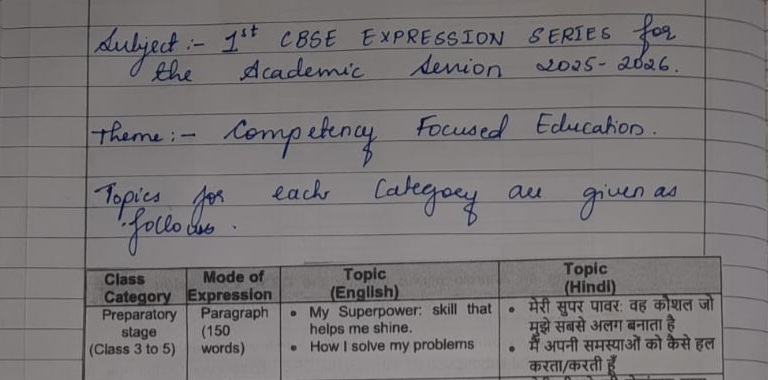 Subject :- 1st CBSE EXPRESSION SERIES for
the Academic Session 2025-2026.
Theme :- Competency Focused Education.
Topics for each Category are given as
follows.
Class Category Mode of Expression Topic (English) Topic (Hindi)
Preparatory stage (Class 3 to 5)
Paragraph (150 words)
• My Superpower: skill that
helps me shine.
• How I solve my problems
• मेरी सुपर पावर: वह कौशल जो
मुझे सबसे अलग बनाता है
• मैं अपनी समस्याओं को कैसे हल
करता/करती हूँ